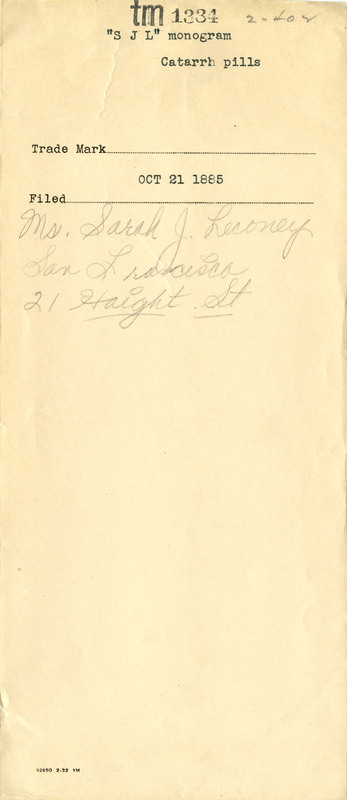 tm 1334 2-408
"S J L" monogram
Catarrh pills
Trade Mark
OCT 21 1885
Filed
Ms. Sarah J. Leconey
San Francisco
21 Haight St
62650 2-32 1M